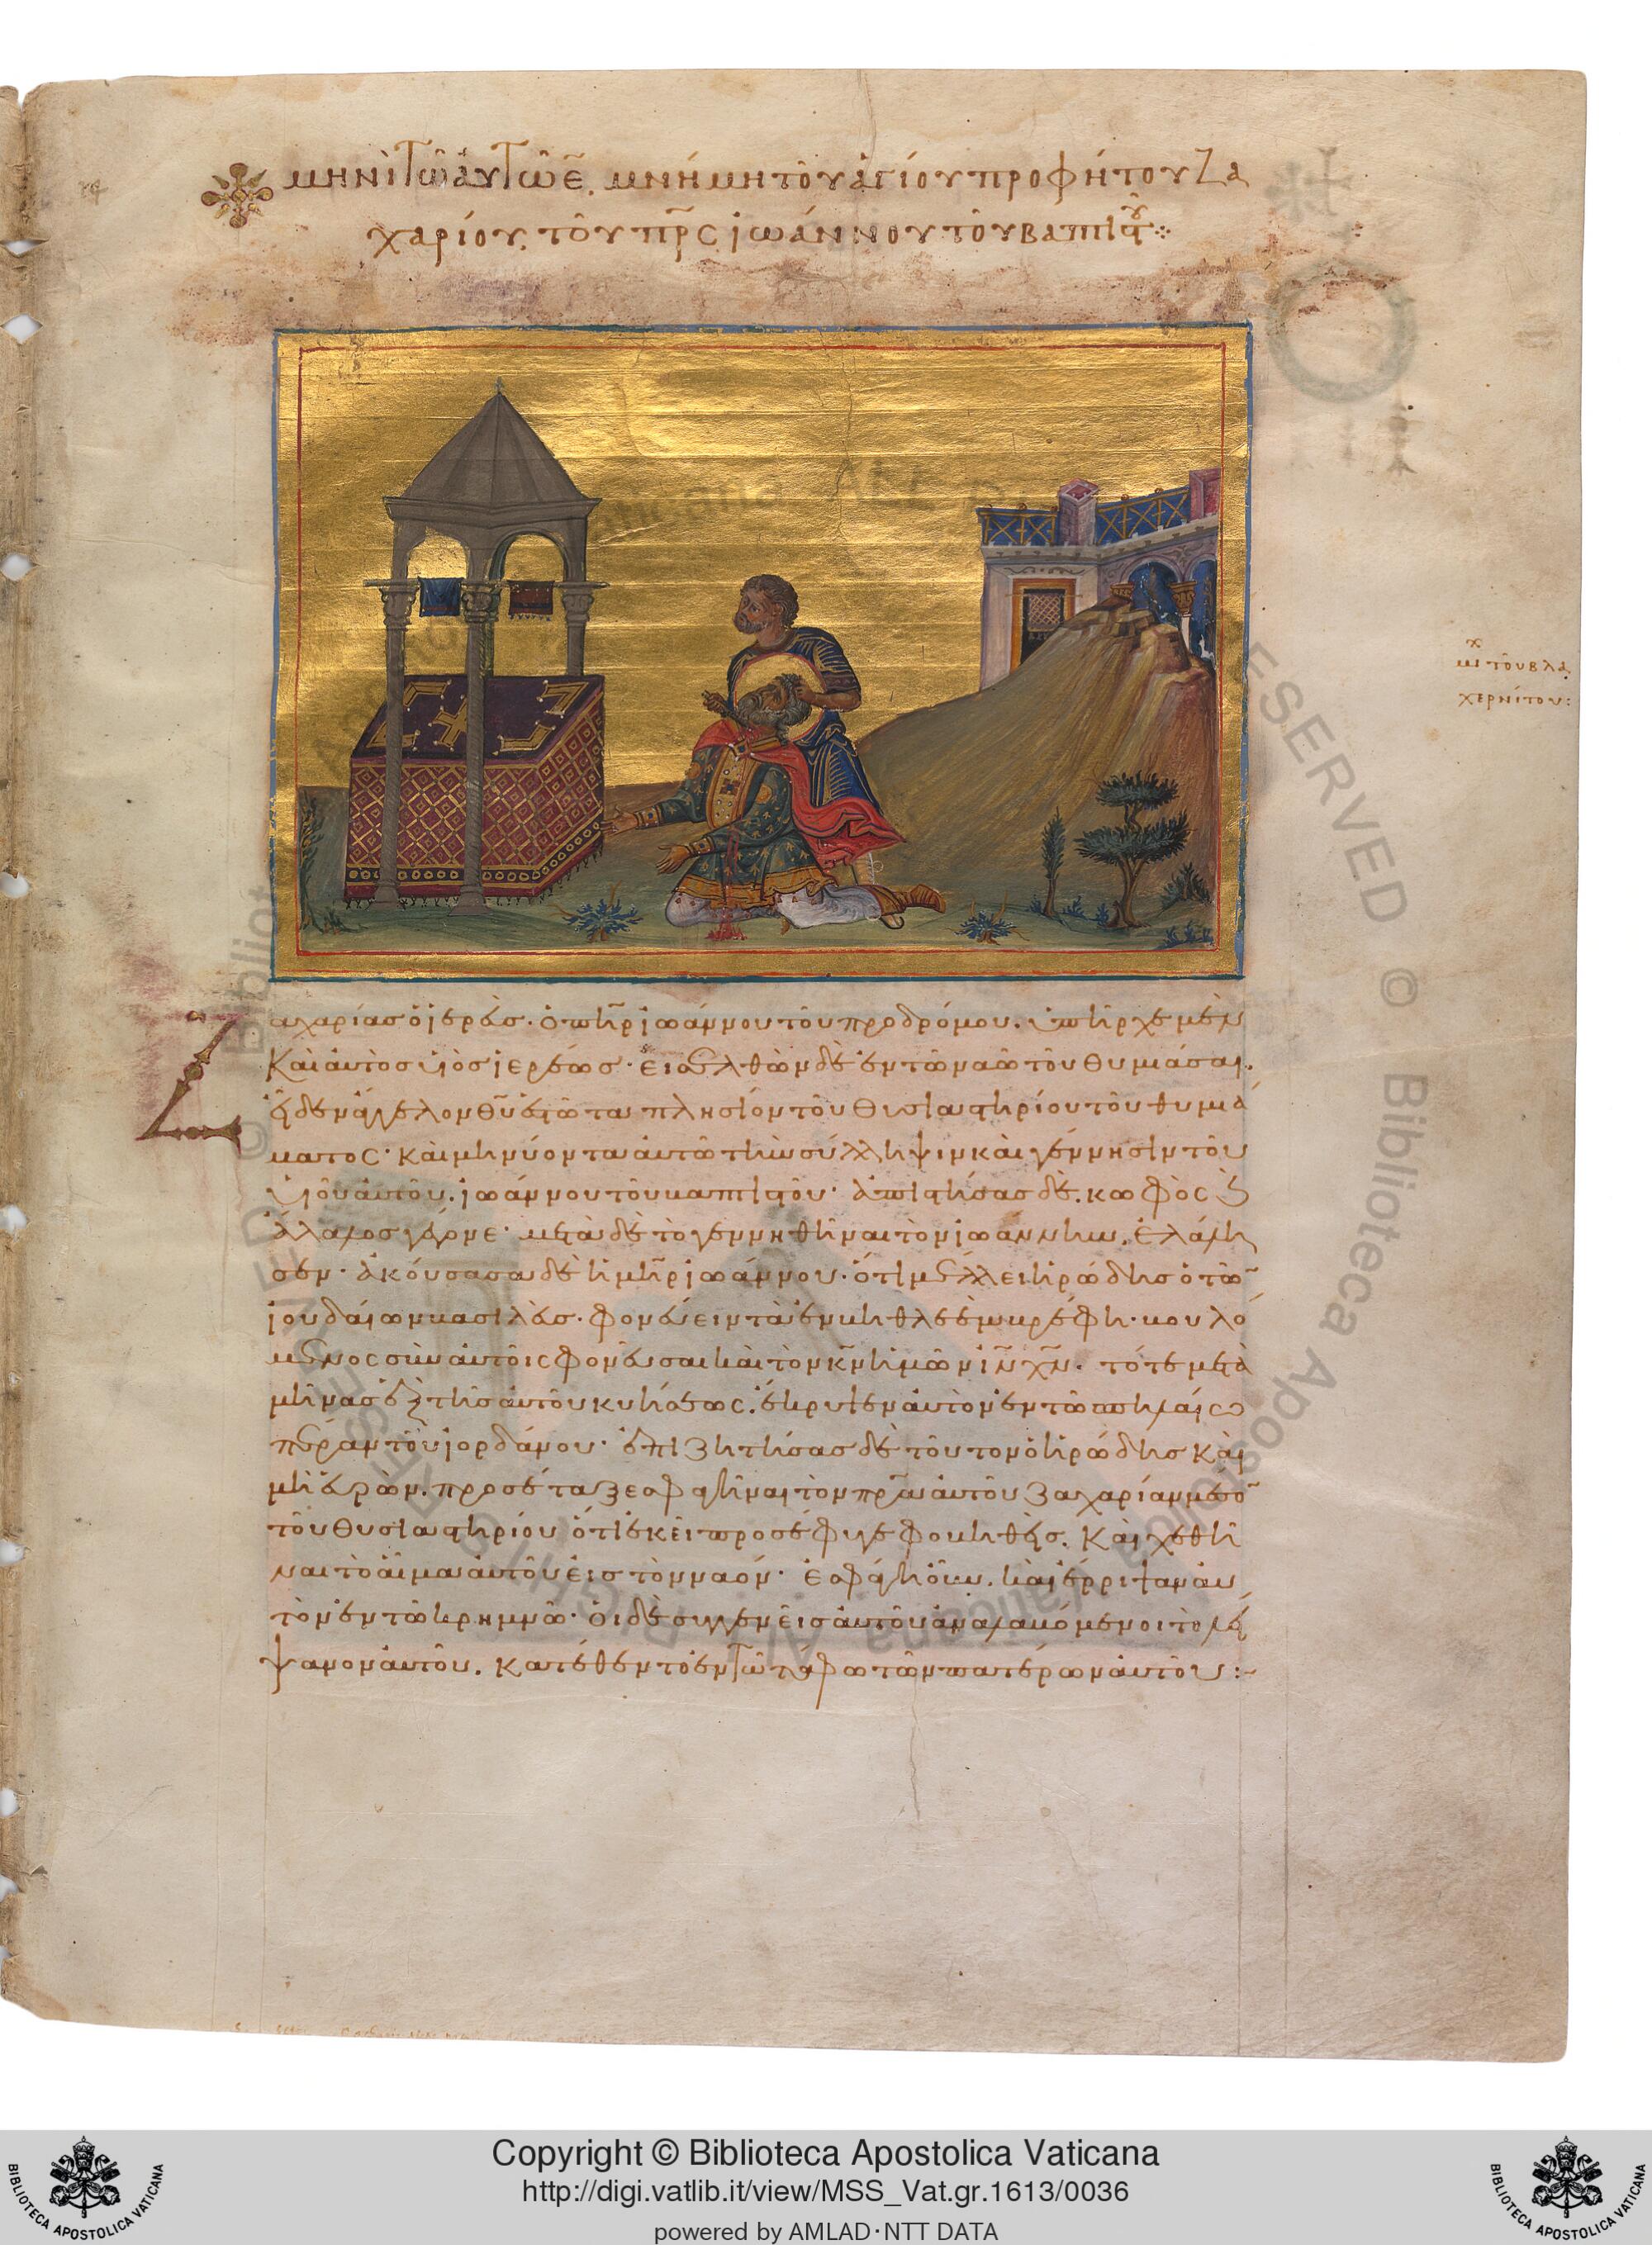 μηνὶ τῶ ἀυτῶ ε̃. μνήμη τοῦ ἁγίου προφήτου Ζα
χαρίου, τοῦ πρ̅ς ἰωάννου τοῦ βαπτιστοῦ
μι χ τοῦ βλα
χερνίτου:
Ζαχαρίας ὁ ἱερεὺς. ὁ π̅ηρ ἰωάννου τοῦ προδρόμου. ὑπῆρχε μὲν
καὶ ἀυτὸς υἱὸς ἱερέως· εἰσελθὼν δὲ ἐν τῶ ναῶ τοῦ θυμιάσαι.
εἶδεν ἄγγελον θ̅υ ἑστῶτα πλησίον τοῦ θυσιαστηρίου τοῦ θυμιά
ματος· καὶ μηνύοντα ἀυτῶ τὴν σύλληψιν καὶ γέννησιν τοῦ
υἱοῦ ἀυτοῦ. ἰωάννου τοῦ βαπτιστοῦ· ἀπιστήσας δὲ. κωφὸς καὶ
ἄλαλος γέγονε· μετὰ δὲ τὸ γεννηθῆναι τὸν ἰωάννην. ἐλάλη
σεν· ἀκούσασα δὲ ἡ μ̅ηρ ἰωάννου. ὅτι μέλλει ἡρώδης ὁ τῶν
ἰουδαίων βασιλεὺς. φονεύειν τὰ ἐν βηθλεὲμ βρέφη. βουλό
μενος σὺν ἀυτοῖς φονεῦσαι καὶ τὸν κ̅ν ἡμῶν ι̅ν χ̅ν. τότε μετὰ
μῆνας ἓξ τῆς ἀυτοῦ κυήσεως. ἔκρυψεν ἀυτὸν ἐν τῶ σπηλαίω
πέραν τοῦ ἰορδάνου· ἐπιζητήσας δὲ τοῦτον ὁ ἡρώδης καὶ
μὴ ἑυρὼν. προσέταξε σφαγῆναι τὸν π̅ρα ἀυτοῦ ζαχαρίαν μέσον
τοῦ θυσιαστηρίου ὅτι ἐκεῖ προσέφυγε φοβηθεὶς. καὶ χεθῆ
ναι τὸ αἷμα ἀυτοῦ εἰς τὸν ναόν· ἐσφάγη οὖν. καὶ ἔρριψαν ἀυ
τὸν ἐν τῶ κρημνῶ· ὁι δὲ συγγενεῖς ἀυτοῦ ἀναλαβόμενοι τὸ λεί
ψανον ἀυτοῦ. κατέθεντο ἐν τῶ τάφω τῶν πατέρων ἀυτοῦ:~
Copyright © Biblioteca Apostolica Vaticana
http://digi.vatlib.it/view/MSS_Vat.gr.1613/0036
powered by AMLAD·NTT DATA
BIBLIOTECA APOSTOLICA VATICANA
BIBLIOTECA APOSTOLICA VATICANA